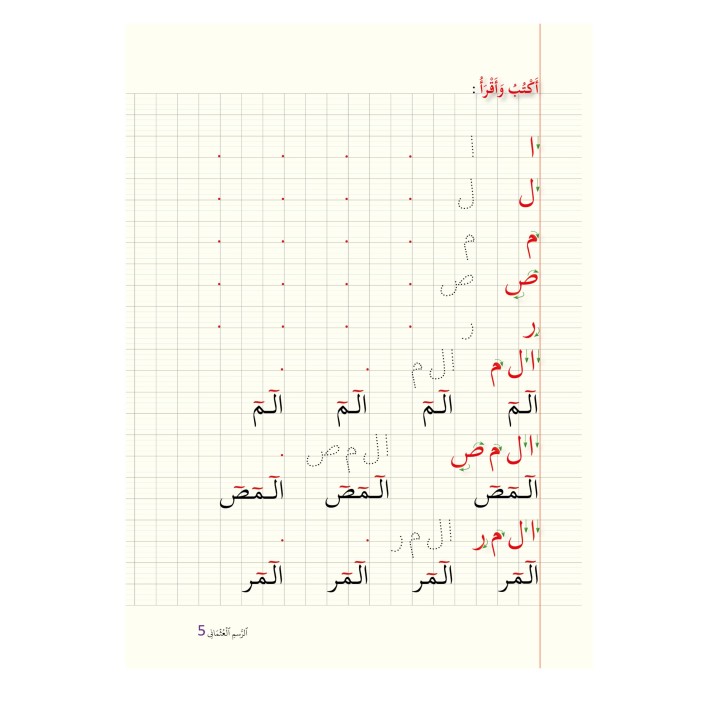 أَكْتُبُ وَأَقْرَأُ :
ا ا
ل ل
م م
ص ص
ر ر
ا ل م ا ل م
الٓمٓ الٓمٓ الٓمٓ الٓمٓ
ا ل م ص ا ل م ص
الٓمٓصٓ الٓمٓصٓ الٓمٓصٓ
ا ل م ر ا ل م ر
الٓمٓر الٓمٓر الٓمٓر الٓمٓر
الرَّسم العُثْمَانِي 5